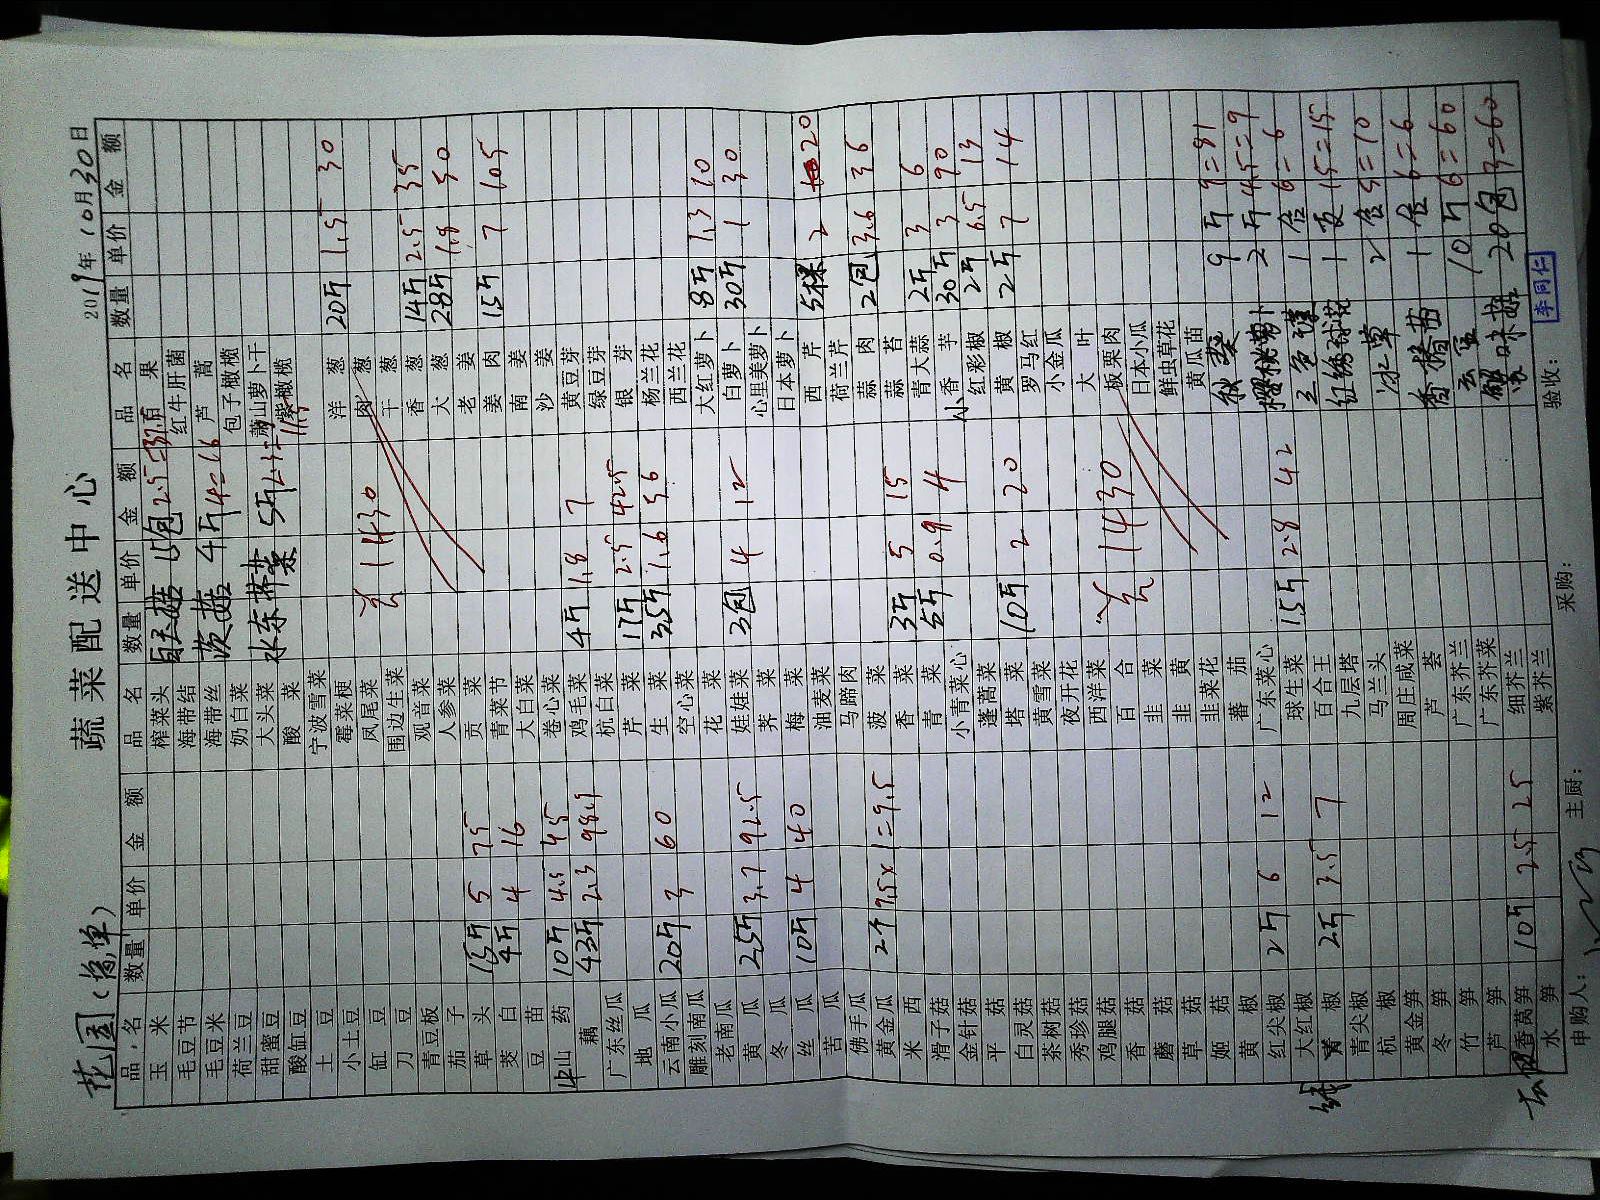 蔬菜配送中心
花园(接单)
2019年10月30日
品名 数量 单价 金额
玉米
毛豆节
毛豆米
荷兰豆
甜蜜豆
酸缸豆
土豆
小土豆
缸豆
刀豆
青豆板
茄子
草头 15斤 5 75
茭白 4斤 4 16
豆苗
山药 10斤 4.5 45
藕 43斤 2.3 98.9
广东丝瓜
地瓜
云南小瓜 20斤 3 60
雕刻南瓜
老南瓜
黄瓜 25斤 3.7 92.5
冬瓜
丝瓜 10斤 4 40
苦瓜
佛手瓜
黄金瓜 2个 9.5×1=9.5
米西
滑子菇
金针菇
平菇
白灵菇
茶树菇
秀珍菇
鸡腿菇
香菇
蘑菇
草菇
姬菇
黄椒
红尖椒 2斤 6 12
大红椒
青椒 2斤 3.5 7
青尖椒
杭椒
黄金笋
冬笋
竹笋
芦笋
香莴笋 10斤 2.5 25
水笋
品名 数量 单价 金额
榨菜头 白玉菇 15包 2.5=37.5
海带结
海带丝 茨菇 4斤 4=16
奶白菜
大头菜 水东芥菜 5斤
酸菜
宁波雪菜
霉菜梗
凤尾菜 1430
围边生菜
观音菜
人参菜
贡菜
青菜节
大白菜
卷心菜
鸡毛菜 4斤 1.8 7
杭白菜
芹菜 17斤 2.5 42.5
生菜 35斤 1.6 56
空心菜
花菜
娃娃菜 3包 4 12
荠菜
梅菜
油麦菜
马蹄肉
菠菜
香菜 3斤 5 15
青菜 5斤 0.9 4
小青菜心
蓬蒿菜
塔菜 10斤 2 20
黄雪菜
夜开花
西洋菜
百合 1430
韭菜
韭黄
韭菜花
蕃茄
广东菜心
球生菜 15斤 2.8 42
百合王
九层塔
马兰头
周庄咸菜
芦荟
广东芥兰
广东芥菜
细芥兰
紫芥兰
品名 数量 单价 金额
果
红牛肝菌
芦蒿
包子橄榄
萧山萝卜干
紫橄榄
洋葱 20斤 1.5 30
肉葱
干葱
香葱 14斤 2.5 35
大葱 28斤 1.8 50
老姜
姜肉 15斤 7 105
南姜
沙姜
黄豆芽
绿豆芽
银芽
杨兰花
西兰花
大红萝卜 8斤 1.3 10
白萝卜 30斤 1 30
心里美萝卜
日本萝卜
西芹 5棵 2 20
荷兰芹
蒜肉 2包 3.6 36
蒜苔
青大蒜 2斤 3 6
小香芋 30斤 3 90
红彩椒 2斤 6.5 13
黄椒 2斤 7 14
罗马红
小金瓜
大叶
板栗肉
日本小瓜
鲜虫草花
黄瓜苗
秋葵 9斤 9=81
樱桃萝卜 2斤 4.5=9
三色堇 1 6=6
红绣球花 1 15=15
冰草 2 5=10
香椿苗 1 6=6
云豆 10斤 6=60
20包 3=60
申购人：
主厨：
采购：
验收：
李同仁